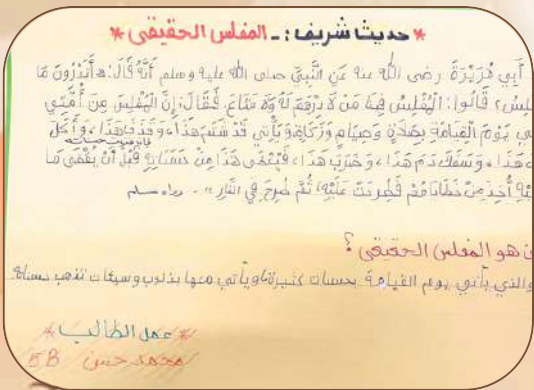 * حديث شريف :- المفلس الحقيقي *
أبي هُرَيْرَةَ رضى الله عنه عَنِ النَّبِيِّ صلى الله عليه وسلم أَنَّهُ قَالَ: « أَتَدْرُونَ مَا
لِسُ؟ قَالُوا: الْمُفْلِسُ فِينَا مَنْ لَا دِرْهَمَ لَهُ وَلَا مَتَاعَ. فَقَالَ: إِنَّ الْمُفْلِسَ مِنْ أُمَّتِي
ي يَوْمَ الْقِيَامَةِ بِصَلَاةٍ وَصِيَامٍ وَزَكَاةٍ وَيَأْتِي قَدْ شَتَمَ هَذَا، وَقَذَفَ هَذَا، وَأَكَلَ
هَذَا، وَسَفَكَ دَمَ هَذَا، وَضَرَبَ هَذَا، فَيُعْطَى هَذَا مِنْ حَسَنَاتِهِ فإن فنيت حسناته قَبْلَ أَنْ يُقْضَى مَا
يْهِ أُخِذَ مِنْ خَطَايَاهُمْ فَطُرِحَتْ عَلَيْهِ، ثُمَّ طُرِحَ فِي النَّارِ » . رواه مسلم
ن هو المفلس الحقيقي ؟
والذي يأتي يوم القيامة بحسنات كثيرة ويأتي معها بذنوب وسيئات تذهب حسناته
* عمل الطالب *
محمد حسن 5B